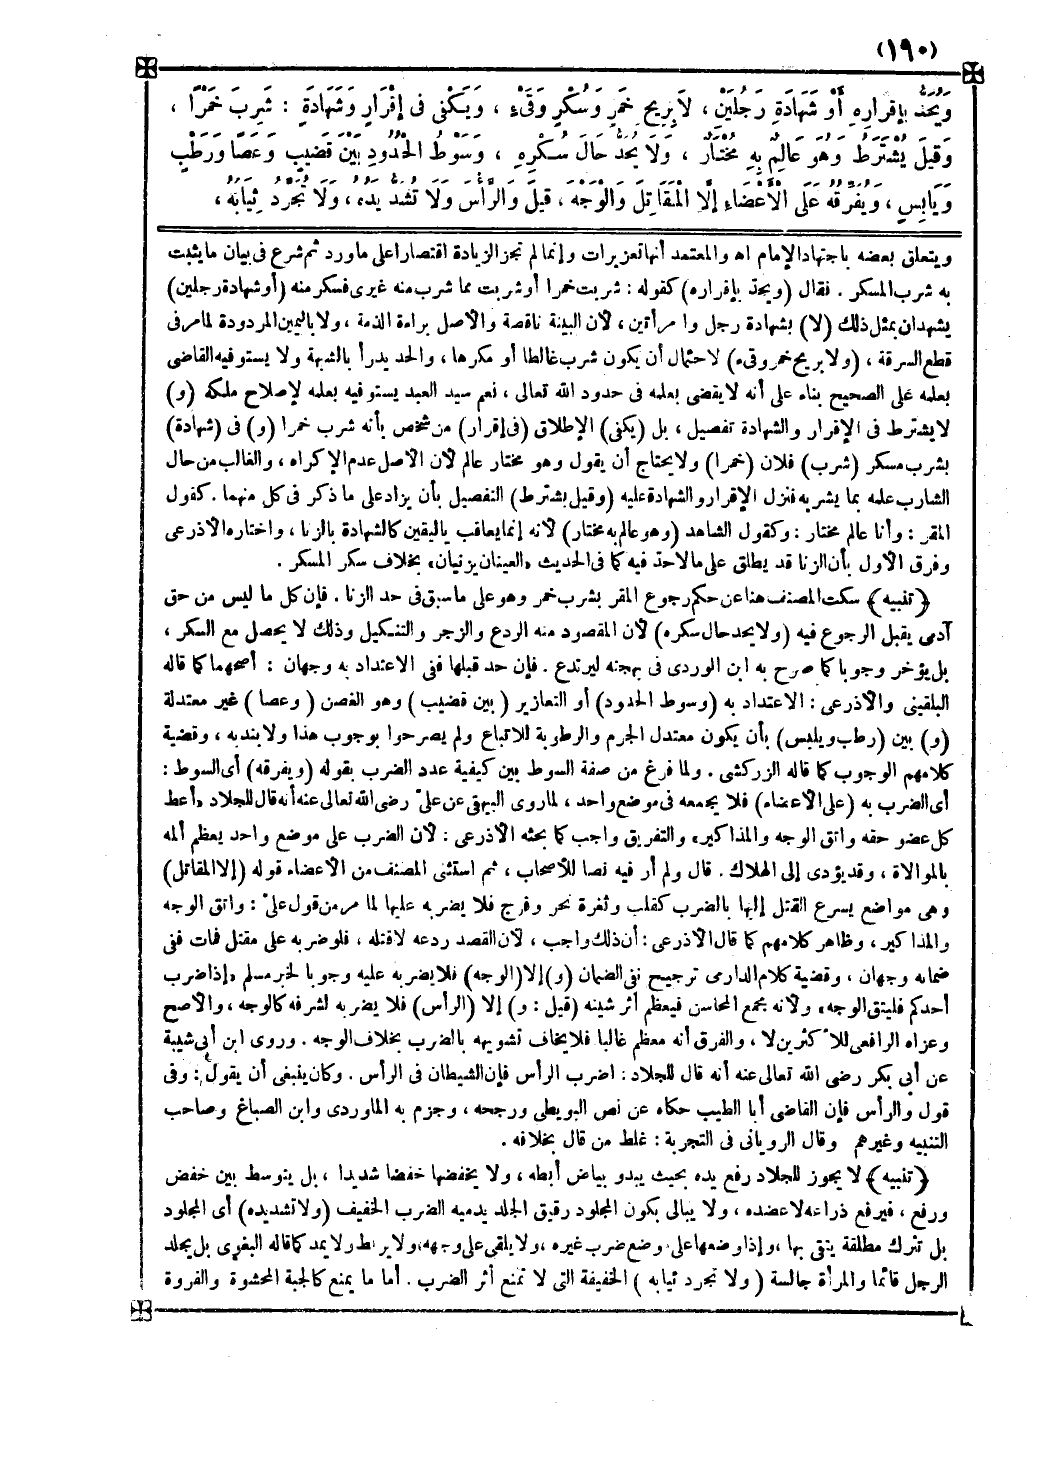 (١٩٠)
وَيُحَدُّ بِإِقْرَارِهِ أَوْ شَهَادَةِ رَجُلَيْنِ ، لَا بِرِيحِ خَمْرٍ وَسُكْرٍ وَقَىْءٍ ، وَيَكْفِى فِى إِقْرَارٍ وَشَهَادَةٍ : شَرِبَ خَمْرًا ،
وَقِيلَ يُشْتَرَطُ وَهُوَ عَالِمٌ بِهِ مُخْتَارٌ ، وَلَا يُحَدُّ حَالَ سُكْرِهِ ، وَسَوْطُ الْحُدُودِ بَيْنَ قَضِيبٍ وَعَصًا وَرَطْبٍ
وَيَابِسٍ ، وَيُفَرِّقُهُ عَلَى الْأَعْضَاءِ إِلَّا الْمَقَاتِلَ وَالْوَجْهَ ، قِيلَ وَالرَّأْسَ وَلَا تُشَدُّ يَدُهُ ، وَلَا تُجَرَّدُ ثِيَابُهُ ،
ويتعلق بعضه باجتهاد الإمام اه والمعتمد أنها تعزيرات وإنما لم تجز الزيادة اقتصارا على ما ورد ثم شرع فى بيان ما يثبت
به شرب المسكر . فقال (ويحدّ بإقراره) كقوله : شربت خمرا أو شربت مما شرب منه غيرى فسكر منه (أو شهادة رجلين)
يشهدان بمثل ذلك (لا) بشهادة رجل وامرأتين ، لأن البينة ناقصة والأصل براءة الذمة ، ولا باليمين المردودة لما مر فى
قطع السرقة ، (ولا بريح خمر وقىء) لاحتمال أن يكون شرب غالطا أو مكرها ، والحد يدرأ بالشبهة ولا يستوفيه القاضى
بعلمه على الصحيح بناء على أنه لا يقضى بعلمه فى حدود الله تعالى ، نعم سيد العبد يستوفيه بعلمه لإصلاح ملكه (و)
لا يشترط فى الإقرار والشهادة تفصيل ، بل (يكفى) الإطلاق (فى إقرار) من شخص بأنه شرب خمرا (و) فى (شهادة)
بشرب مسكر (شرب) فلان (خمرا) ولا يحتاج أن يقول وهو مختار عالم لأن الأصل عدم الإكراه ، والغالب من حال
الشارب علمه بما يشربه فنزل الإقرار والشهادة عليه (وقيل يشترط) التفصيل بأن يزاد على ما ذكر فى كل منهما . كقول
المقر : وأنا عالم مختار : وكقول الشاهد (وهو عالم به مختار) لأنه إنما يعاقب باليقين كالشهادة بالزنا ، واختاره الأذرعى
وفرق الأول بأن الزنا قد يطلق على ما لا حد فيه كما فى الحديث «العينان يزنيان» بخلاف سكر المسكر .
﴿ تنبيه ﴾ سكت المصنف هنا عن حكم رجوع المقر بشرب خمر وهو على ما سبق فى حد الزنا . فإن كل ما ليس من حق
آدمى يقبل الرجوع فيه (ولا يحد حال سكره) لأن المقصود منه الردع والزجر والتنكيل وذلك لا يحصل مع السكر ،
بل يؤخر وجوبا كما صرح به ابن الوردى فى بهجته ليرتدع . فإن حد قبلها ففى الاعتداد به وجهان : أصحهما كما قاله
البلقينى والأذرعى : الاعتداد به (وسوط الحدود) أو التعازير ( بين قضيب ) وهو الغصن ( وعصا ) غير معتدلة
(و) بين (رطب ويابس) بأن يكون معتدل الجرم والرطوبة للاتباع ولم يصرحوا بوجوب هذا ولا بندبه ، وقضية
كلامهم الوجوب كما قاله الزركشى . ولما فرغ من صفة السوط بين كيفية عدد الضرب بقوله (ويفرقه) أى السوط :
أى الضرب به (على الأعضاء) فلا يجمعه فى موضع واحد ، لما روى البيهقى عن علىّ رضى الله تعالى عنه أنه قال للجلاد «أعط
كل عضو حقه واتق الوجه والمذاكير» والتفريق واجب كما بحثه الأذرعى : لأن الضرب على موضع واحد يعظم ألمه
بالموالاة ، وقد يؤدى إلى الهلاك . قال ولم أر فيه نصا للأصحاب ، ثم استثنى المصنف من الأعضاء قوله (إلا المقاتل)
وهى مواضع يسرع القتل إليها بالضرب كقلب وثغرة نحر وفرج فلا يضربه عليها لما مر من قول علىّ : واتق الوجه
والمذاكير ، وظاهر كلامهم كما قال الأذرعى : أن ذلك واجب ، لأن القصد ردعه لا قتله ، فلو ضربه على مقتل فمات ففى
ضمانه وجهان ، وقضية كلام الدارمى ترجيح نفى الضمان (و) إلا (الوجه) فلا يضربه عليه وجوبا لخبر مسلم «إذا ضرب
أحدكم فليتق الوجه» ولأنه يجمع المحاسن فيعظم أثر شينه (قيل : و) إلا (الرأس) فلا يضربه لشرفه كالوجه ، والأصح
وعزاه الرافعى للأكثرين لا ، والفرق أنه معظم غالبا فلا يخاف تشويهه بالضرب بخلاف الوجه . وروى ابن أبى شيبة
عن أبى بكر رضى الله تعالى عنه أنه قال للجلاد : اضرب الرأس فإن الشيطان فى الرأس . وكان ينبغى أن يقول : وفى
قول والرأس فإن القاضى أبا الطيب حكاه عن نص البويطى ورجحه ، وجزم به الماوردى وابن الصباغ وصاحب
التنبيه وغيرهم وقال الرويانى فى التجربة : غلط من قال بخلافه .
﴿ تنبيه ﴾ لا يجوز للجلاد رفع يده بحيث يبدو بياض أبطه ، ولا يخفضها خفضا شديدا ، بل يتوسط بين خفض
ورفع ، فيرفع ذراعه لا عضده ، ولا يبالى بكون المجلود رقيق الجلد يدميه الضرب الخفيف (ولا تشد يده) أى المجلود
بل تترك مطلقة يتقى بها ، وإذا وضعها على موضع ضرب غيره ، ولا يلقى على وجهه ، ولا يربط ولا يمد كما قاله البغوى بل يجلد
الرجل قائما والمرأة جالسة ( ولا تجرد ثيابه ) الخفيفة التى لا تمنع أثر الضرب . أما ما يمنع كالجبة المحشوة والفروة